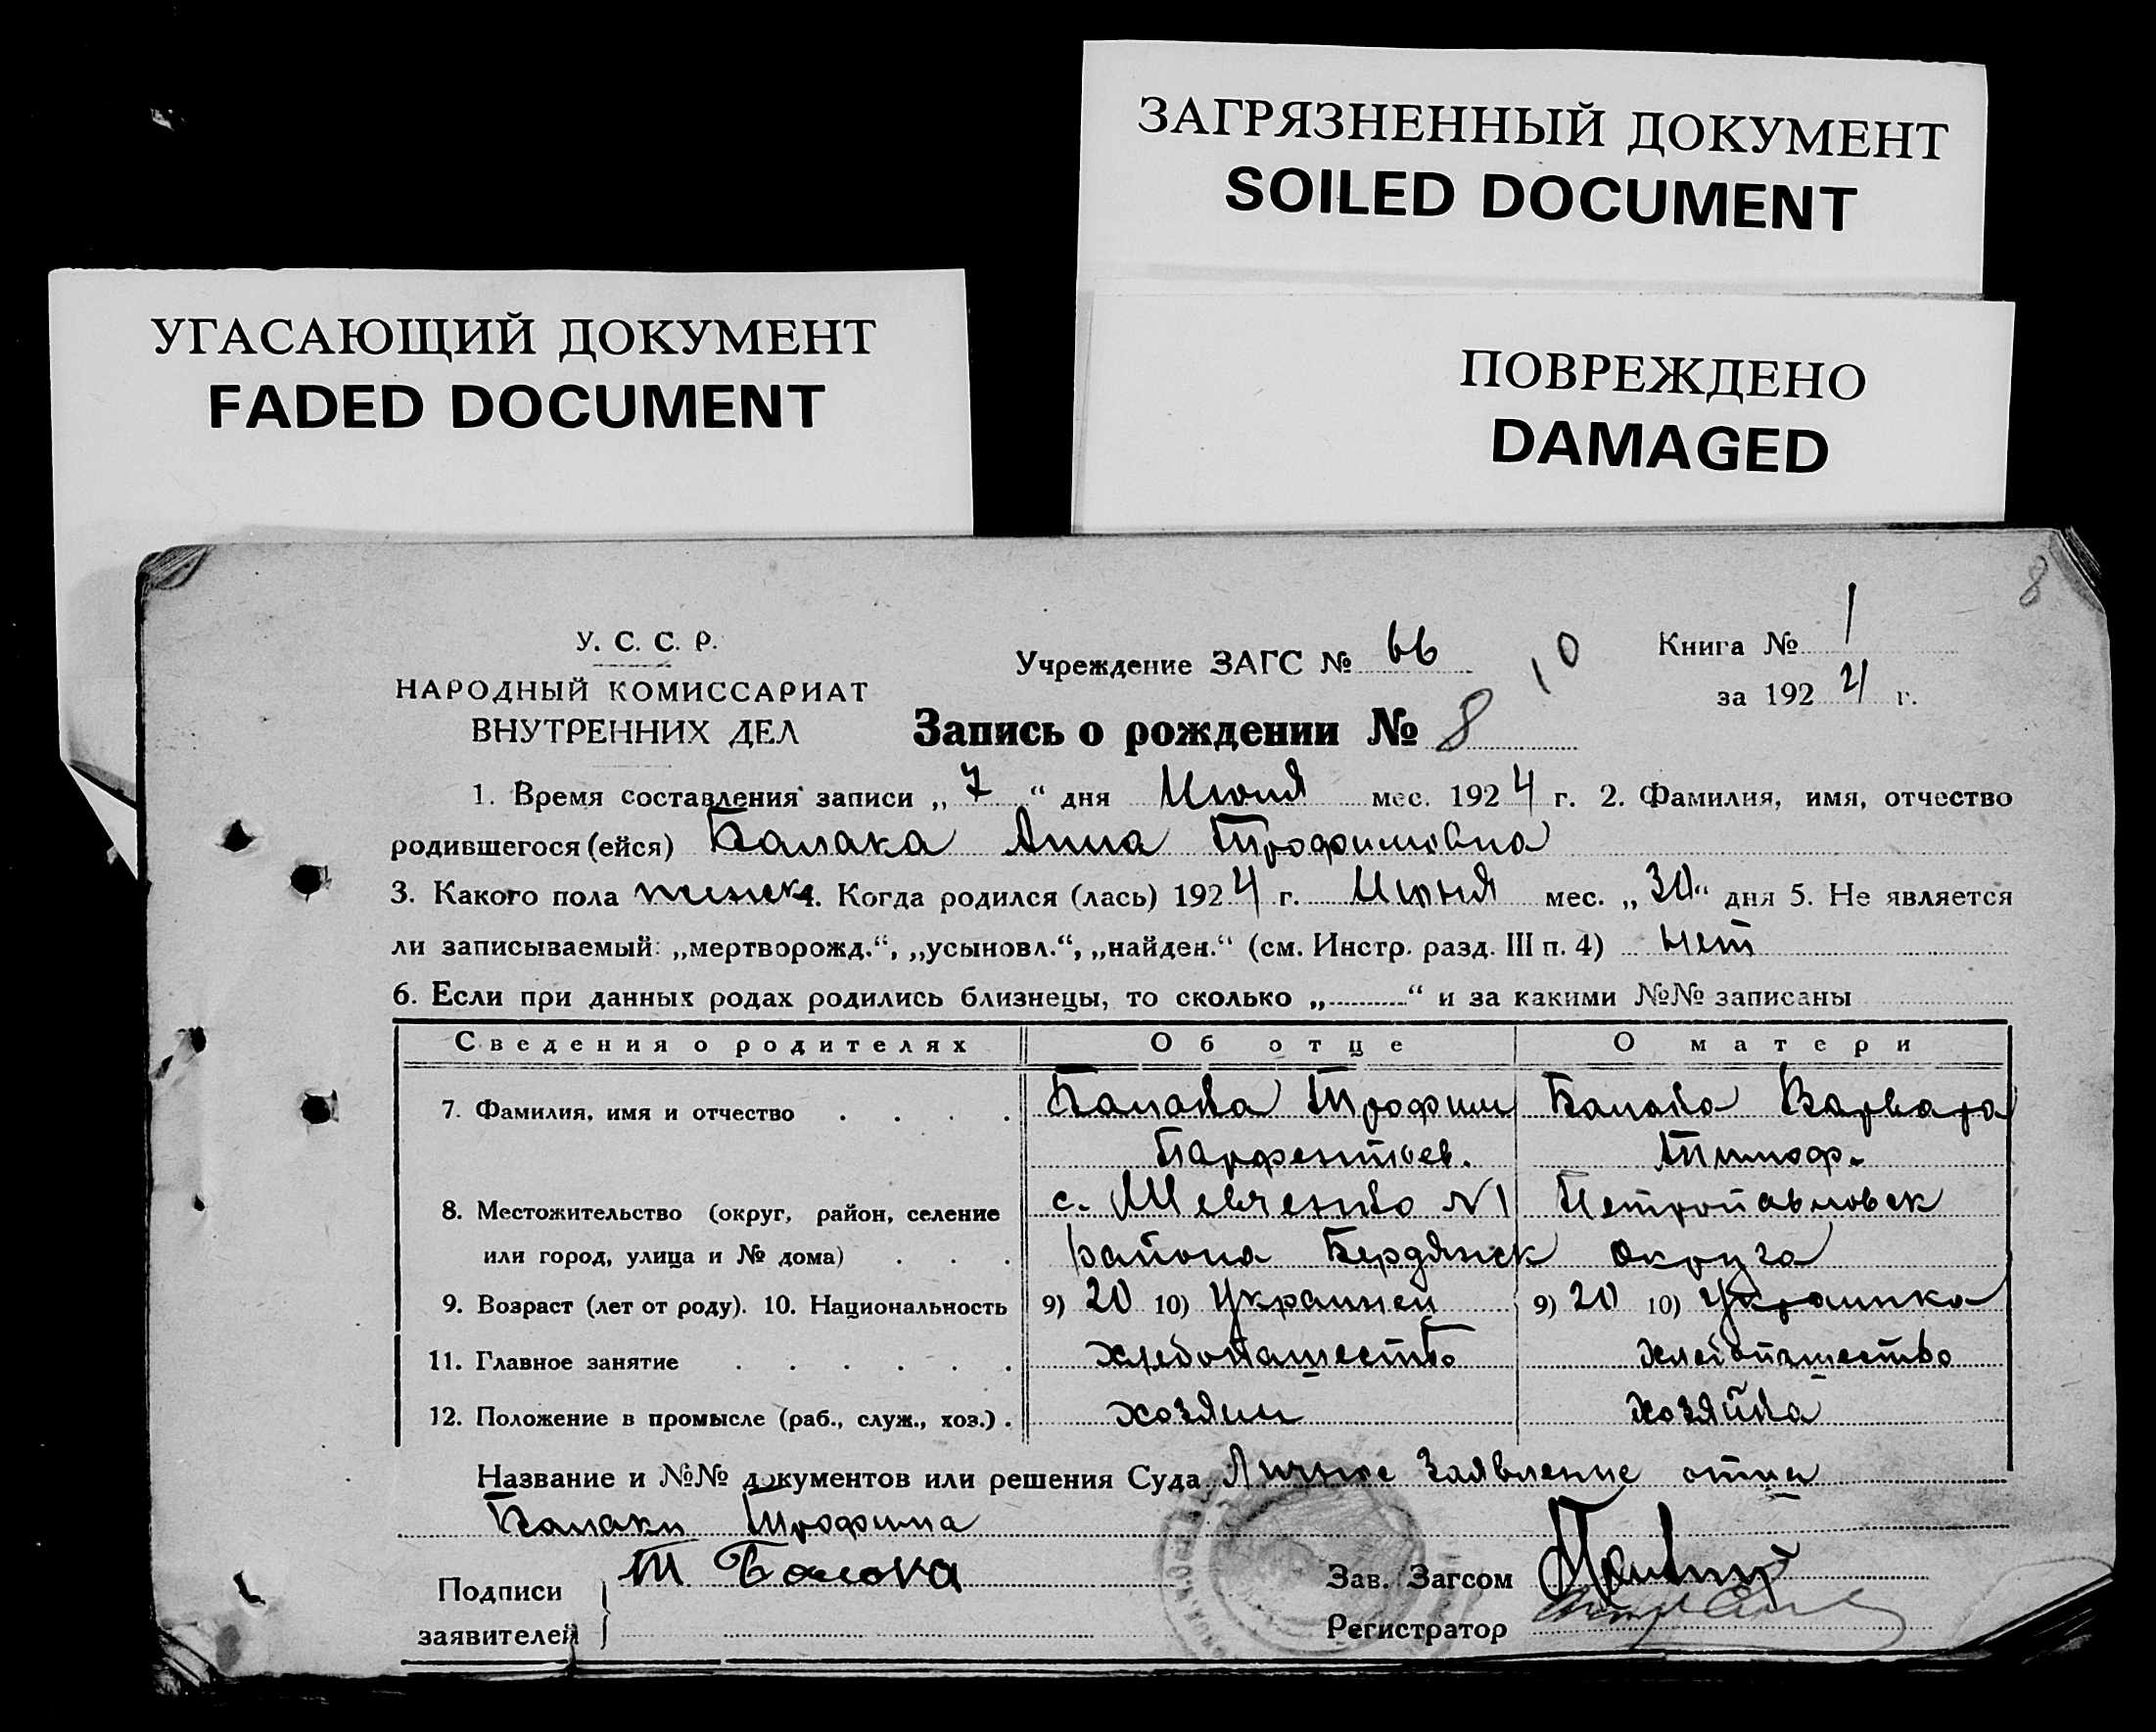 ЗАГРЯЗНЕННЫЙ ДОКУМЕНТ
SOILED DOCUMENT
УГАСАЮЩИЙ ДОКУМЕНТ
FADED DOCUMENT
ПОВРЕЖДЕНО
DAMAGED
8
У. С. С. Р.
НАРОДНЫЙ КОМИССАРИАТ
ВНУТРЕННИХ ДЕЛ
Учреждение ЗАГС № 66
10
Книга № 1
за 1924 г.
Запись о рождении № 8
1. Время составления записи „7“ дня Июля мес. 1924 г. 2. Фамилия, имя, отчество
родившегося (ейся) Балака Анна Трофимовна
3. Какого пола женск 4. Когда родился (лась) 1924 г. Июня мес. „30“ дня 5. Не является
ли записываемый: „мертворожд.“, „усыновл.“, „найден.“ (см. Инстр. разд. III п. 4) нет
6. Если при данных родах родились близнецы, то сколько „ “ и за какими №№ записаны
Сведения о родителях Об отце О матери
7. Фамилия, имя и отчество Балака Трофим Балака Варвара
Парфентьев. Тимоф.
8. Местожительство (округ, район, селение с. Шевченко N1 Петропавловск
или город, улица и № дома) района Бердянск округа
9. Возраст (лет от роду). 10. Национальность 9) 20 10) Украинец 9) 20 10) Украинка
11. Главное занятие хлебопашество хлебопашество
12. Положение в промысле (раб., служ., хоз.) хозяин хозяйка
Название и №№ документов или решения Суда Личное заявление отца
Балаки Трофима
Подписи Т Балака
заявителей
Зав. Загсом
Регистратор